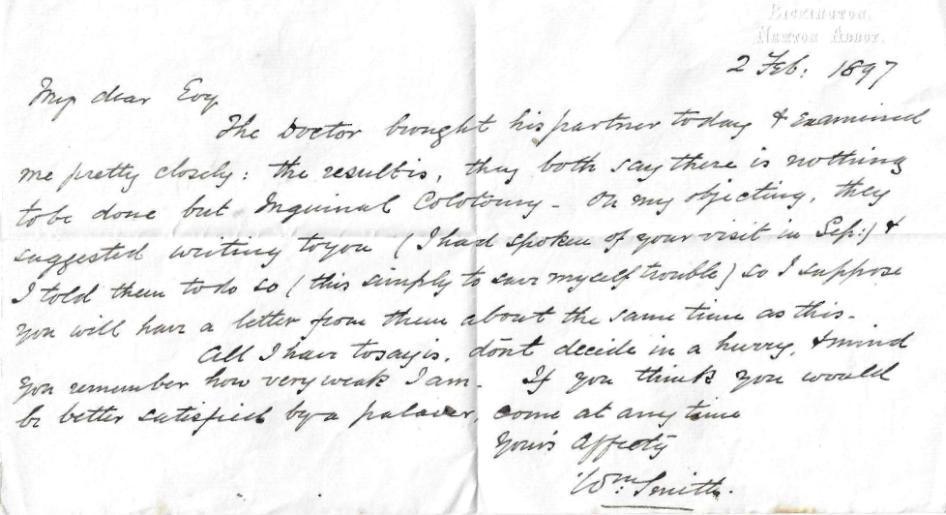 Bickington.
Newton Abbot.
2 Feb: 1897
My dear Evy
The Doctor brought his partner today & examined
me pretty closely: the result is, they both say there is nothing
to be done but Inguinal Colotomy - On my objecting, they
suggested writing to you (I had spoken of your visit in Sep:) &
I told them to do so (this simply to save myself trouble) so I suppose
you will have a letter from them about the same time as this.
All I have to say is, dont decide in a hurry, & mind
you remember how very weak I am. If you think you would
be better satisfied by a palaver, come at any time
Yours Affectly
Wm: Smith.